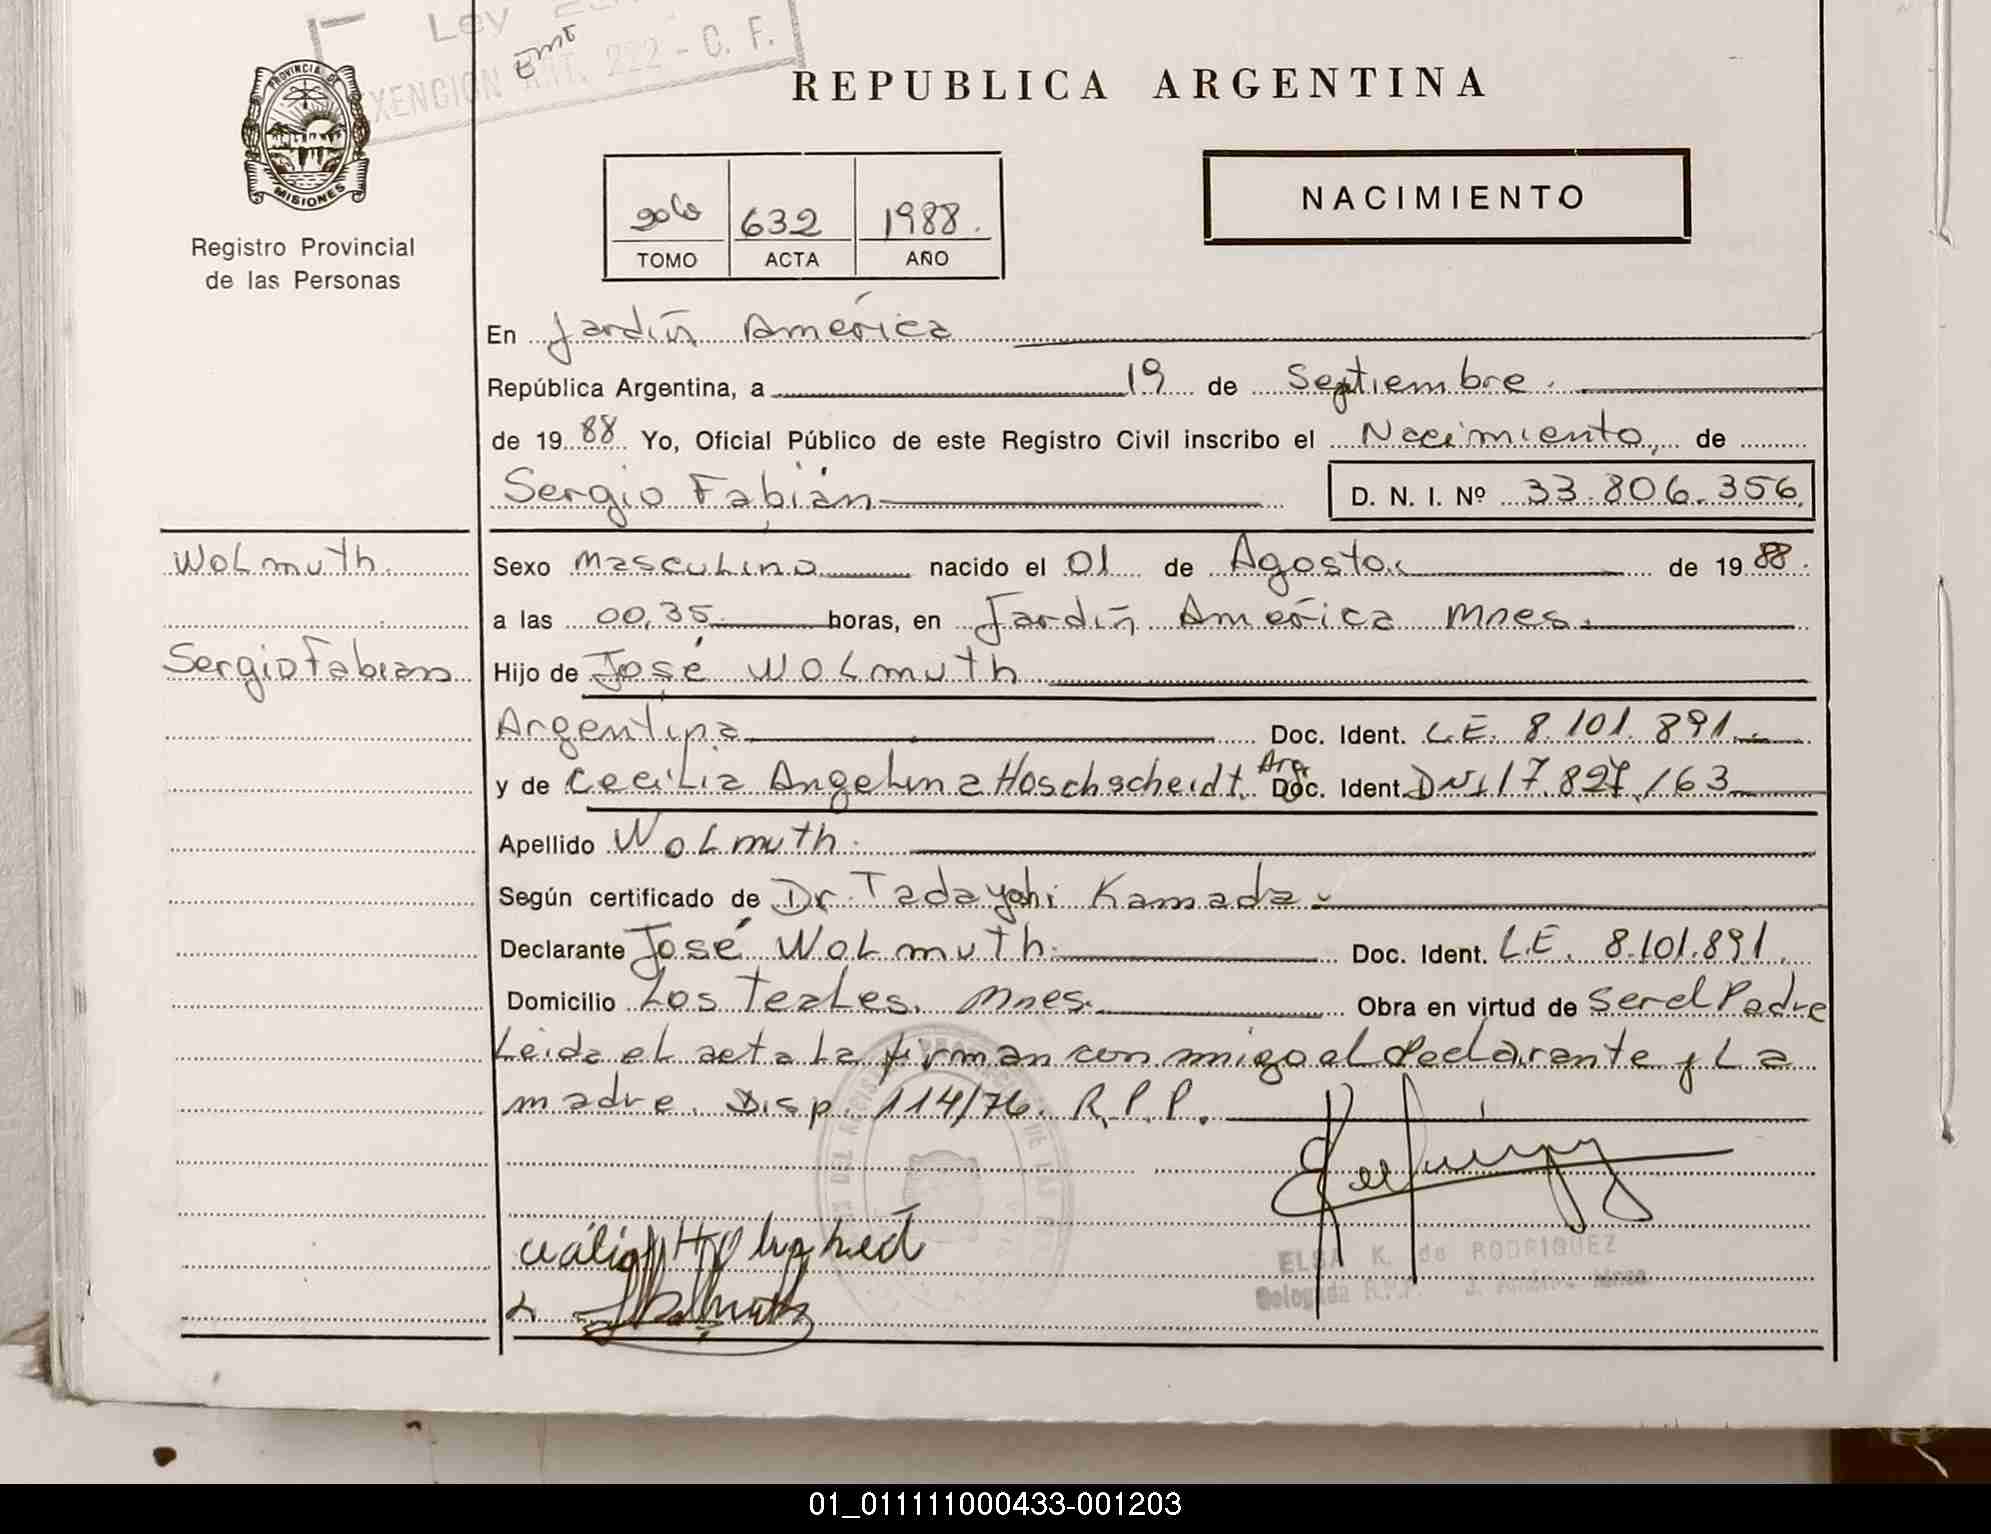 Ley
EXENCION ART. 222 - C. F.
PROVINCIA DE
MISIONES
Registro Provincial
de las Personas
REPUBLICA ARGENTINA
NACIMIENTO
632 1988.
TOMO ACTA AÑO
En Jardín América
República Argentina, a 19 de Septiembre.
de 19 88 Yo, Oficial Público de este Registro Civil inscribo el Nacimiento, de
Sergio Fabián D. N. I. Nº 33.806.356
Wolmuth
Sergio Fabian
Sexo masculino nacido el 01 de Agosto de 19 88.
a las 00,35 horas, en Jardín América Mnes.
Hijo de José Wolmuth
Argentina Doc. Ident. L.E. 8.101.891.
y de Cecilia Angelina Hoschscheidt. Arg. Doc. Ident. DNI 17.827.163
Apellido Wolmuth.
Según certificado de Dr. Tadayohi Kamada
Declarante José Wolmuth. Doc. Ident. L.E. 8.101.891.
Domicilio Los Teales. Mnes. Obra en virtud de ser el Padre
Leida el acta la firman conmigo el declarante y La
madre. Disp. 114/76. R.P.P.
ELSA K. de RODRIGUEZ
Delegada R.P.P. J. América - Mnes
01_011111000433-001203